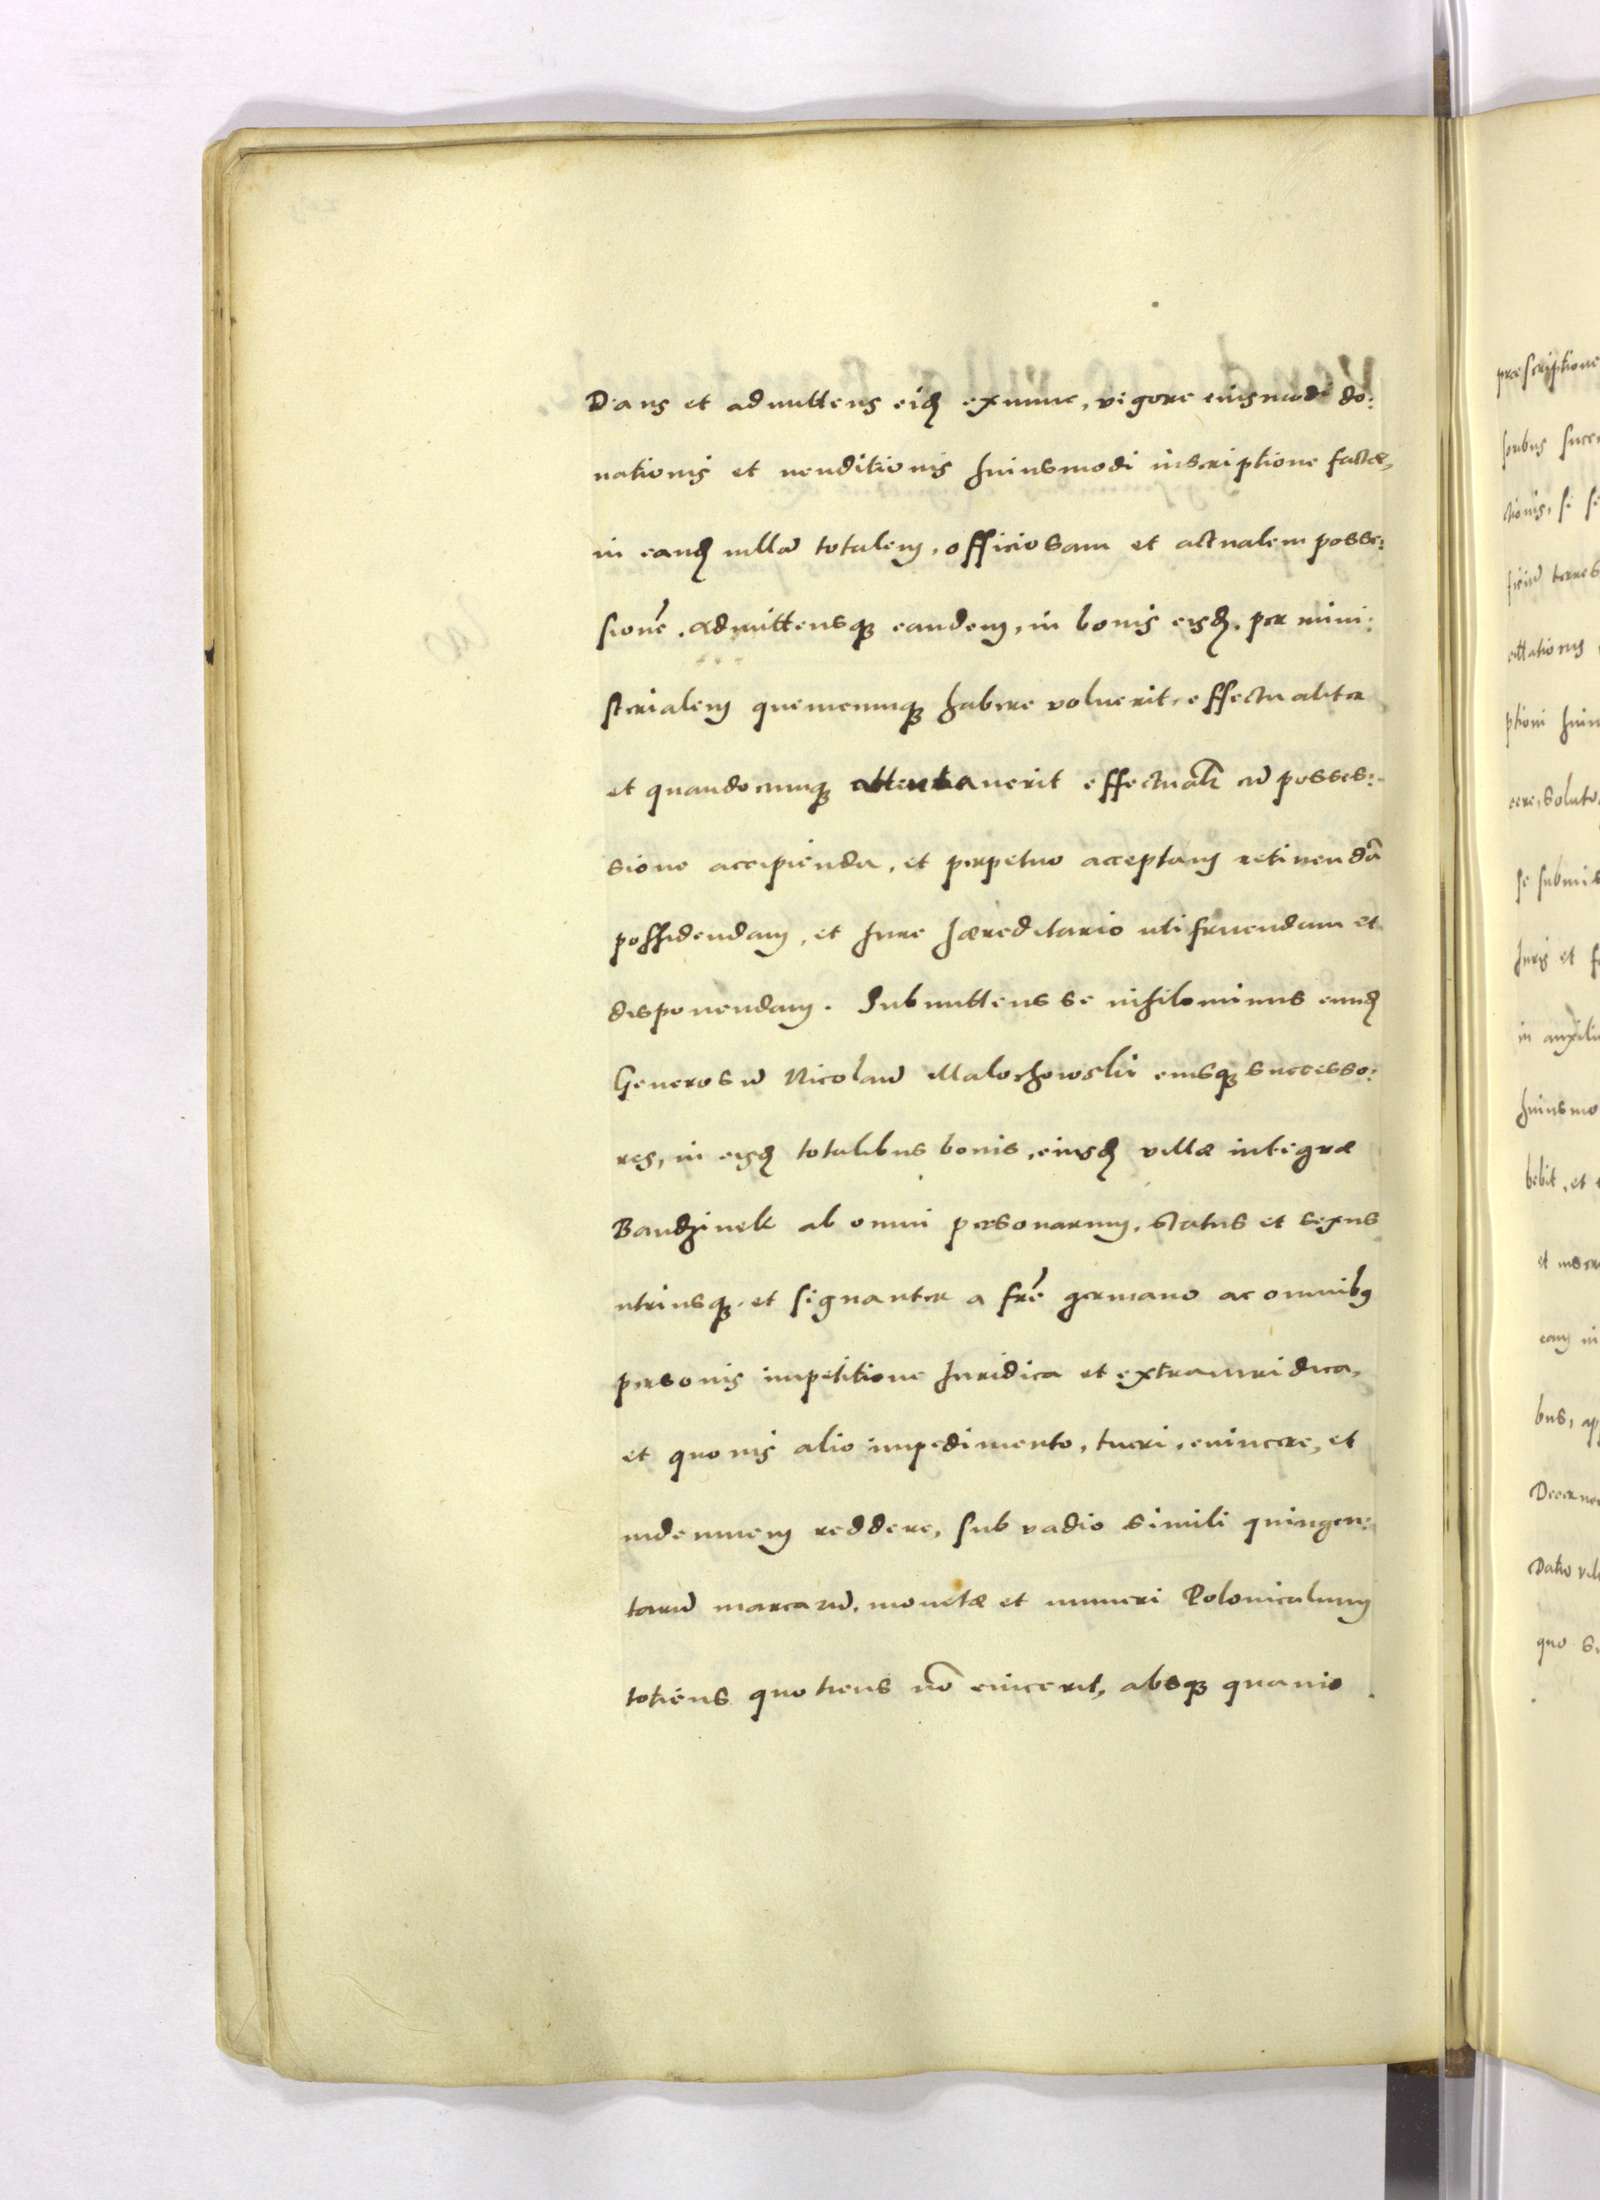 Dans et admittens eid exnunc, vigore eiusmodi do:
nationis et venditionis huiusmodi inscriptione factæ,
in eand villã totalem, officiosam et actualem posse:
sionẽ, admittensq eandem, in bonis eisd, per mini:
sterialem quemcunq habere voluerit, effectualiter
et quandocunq attentaverit effectualr cũ posses:
sione accipienda, et perpetuo acceptam retinendã
possidendam, et Jure hæreditario utifruendam et
disponendam. Submittens se nihilominus eund
Generosũ Nicolaũ Malochowski eiusq successo:
res, in eisd totalibus bonis, eiusd villæ integræ
Bandzinek ab omni personarum, status et sexus
utriusq, et signanter a frẽ germano ac omnibus
personis impetitione Juridica et extrajuridica,
et quovis alio impedimento, tueri, evincere, et
indemnem reddere, sub vadio simili quingen:
tarũ marcarũ, monetæ et numeri Polonicalium
totiens quotiens nõ evicerit, absq quavis